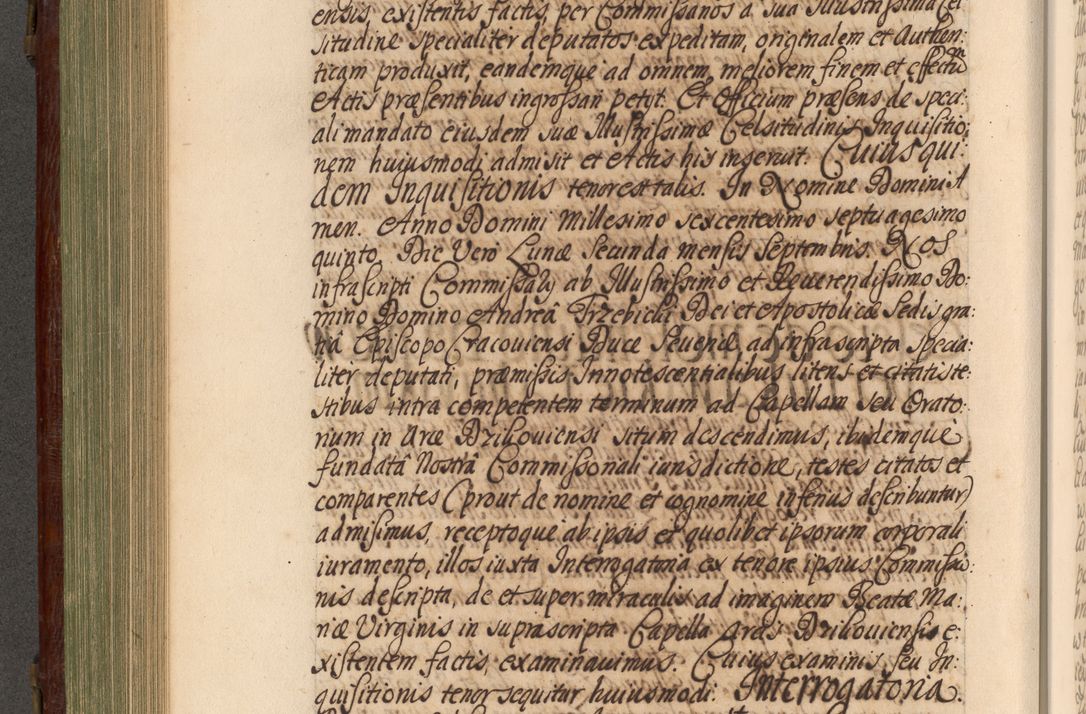 ensis, existentis factis, per Commissanos a sua Illustrissima Cel
situdine specialiter deputatos expeditam, originalem et Authen:
ticam produxit, eandemque ad omnem meliorem finem et effectū
Actis præsentibus ingrossari petyt. Et Officium præsens de speci:
ali mandato eiusdem suæ Illustrissimæ Celsitudinis Inquisitio:
nem huiusmodi admisit et Actis his inseruit. Cuius qui:
dem Inquisitionis tenor est talis. In Nomine Domini A
men. Anno Domini Millesimo sexcentesimo septuagesimo
quinto, Die Vero Lunæ Secunda mensis Septembris. Nos
infrascripti Commissarij ab Illustrissimo et Reuerendissimo Do:
mino Domino Andreâ Trzebicki Dei et Apostolicæ Sedis gra:
tiâ Episcopo Cracouiensi Duce Seueriæ ad infrascripta specia:
liter deputati, præmissis Innotescentialibus literis et citatis te:
stibus intra competentem terminum ad Capellam seu Orato:
rium in Arce Dzikouiensi situm descendimus, ibidemque
fundatâ Nostrâ Commissoriali iurisdictione, testes citatos et
comparentes (prout de nomine et cognomine inferius describuntur)
admisimus, receptoque ab ipsis et quolibet ipsorum corporali
iuramento, illos iuxta Interrogatoria ex tenore ipsius Commissio:
nis descripta, de et super miraculis ad imaginem Beatæ Ma:
riæ Virginis in suprascripta Capella Arcis Dzikouiensis e:
xistentem factis, examinauimus. Cuius examinis seu In:
quisitionis tenor sequitur huiusmodi: Interrogatoria.